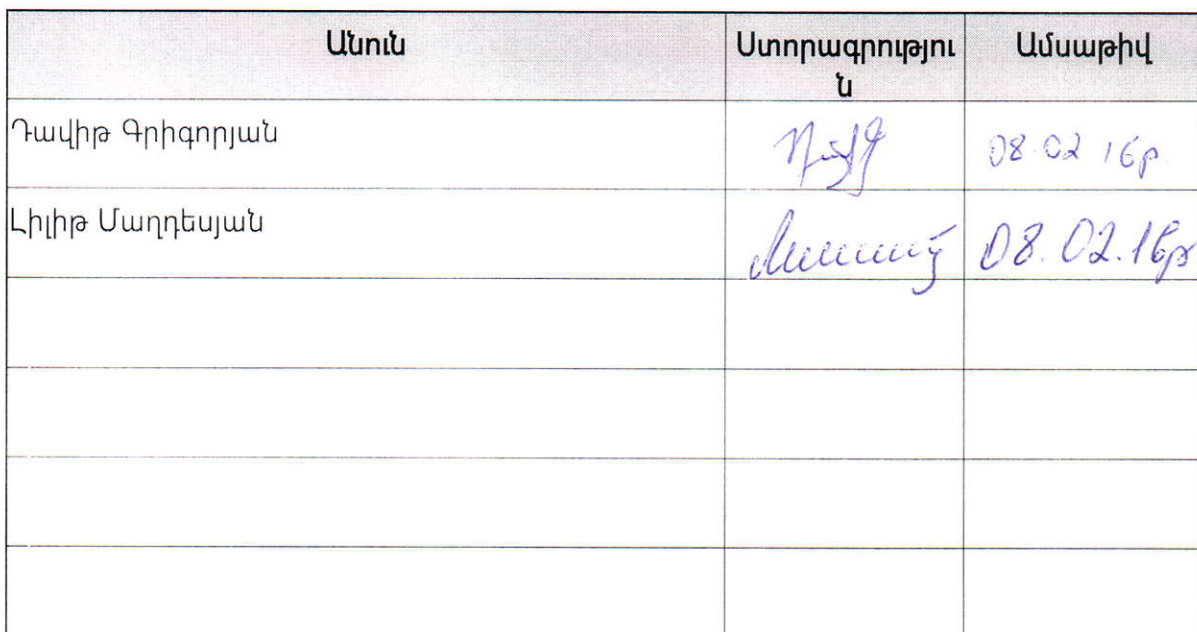 Անուն
Ստորագրությու
ն
Ամսաթիվ
Դավիթ Գրիգորյան
08.02 16թ
Լիլիթ Մաղդեսյան
08.02.16թ